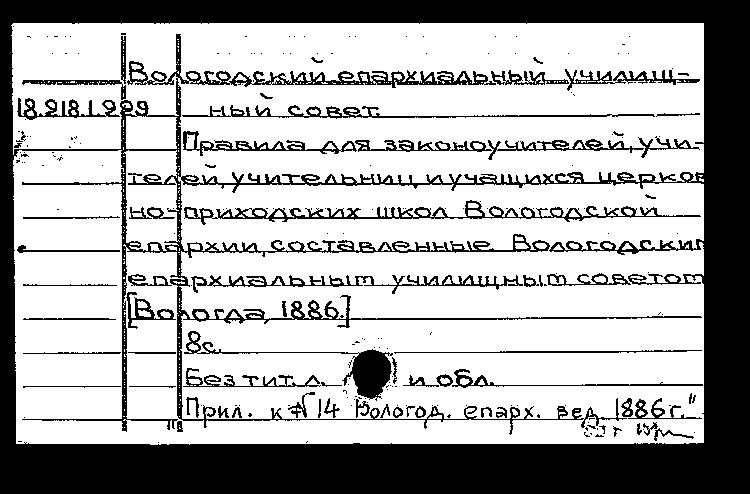 Вологодский епархиальный училищ-
18.218.1.229 ный совет.
Правила для законоучителей, учи-
телей, учительниц и учащихся церков
но-приходских школ Вологодской
епархии, составленные Вологодским
епархиальным училищным советом
[Вологда, 1886.]
8с.
Без тит. л. и обл.
Прил. к № 14 Вологод. епарх. вед. 1886 г."